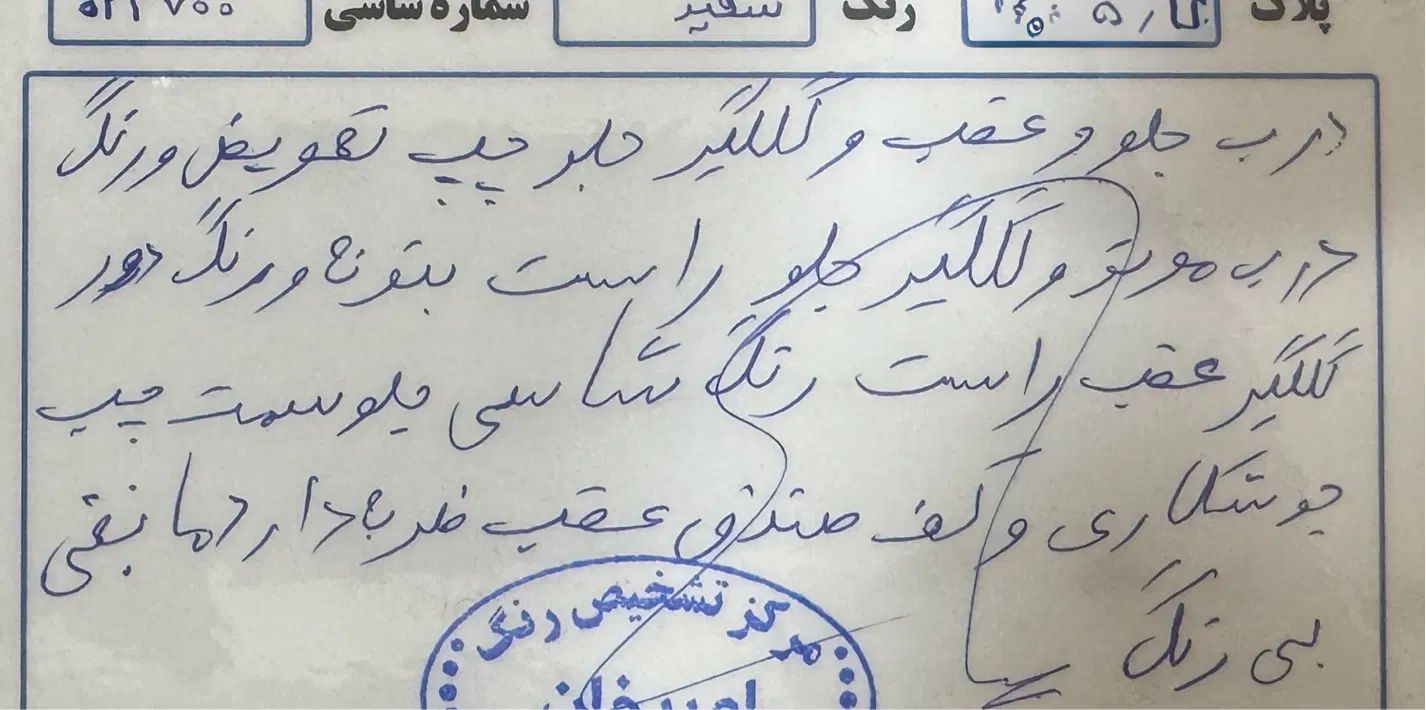 پلاک رنگ سفید شماره شاسی ۵۲۲۷۰۰
درب جلو و عقب و گلگیر جلو چپ تعویض و رنگ
درب موتور و گلگیر جلو راست بتونه و رنگ دور
گلگیر عقب راست رنگ شاسی جلو سمت چپ
جوشکاری و کف صندوق عقب ضربه دارد مابقی
بی رنگ
مرکز تشخیص رنگ